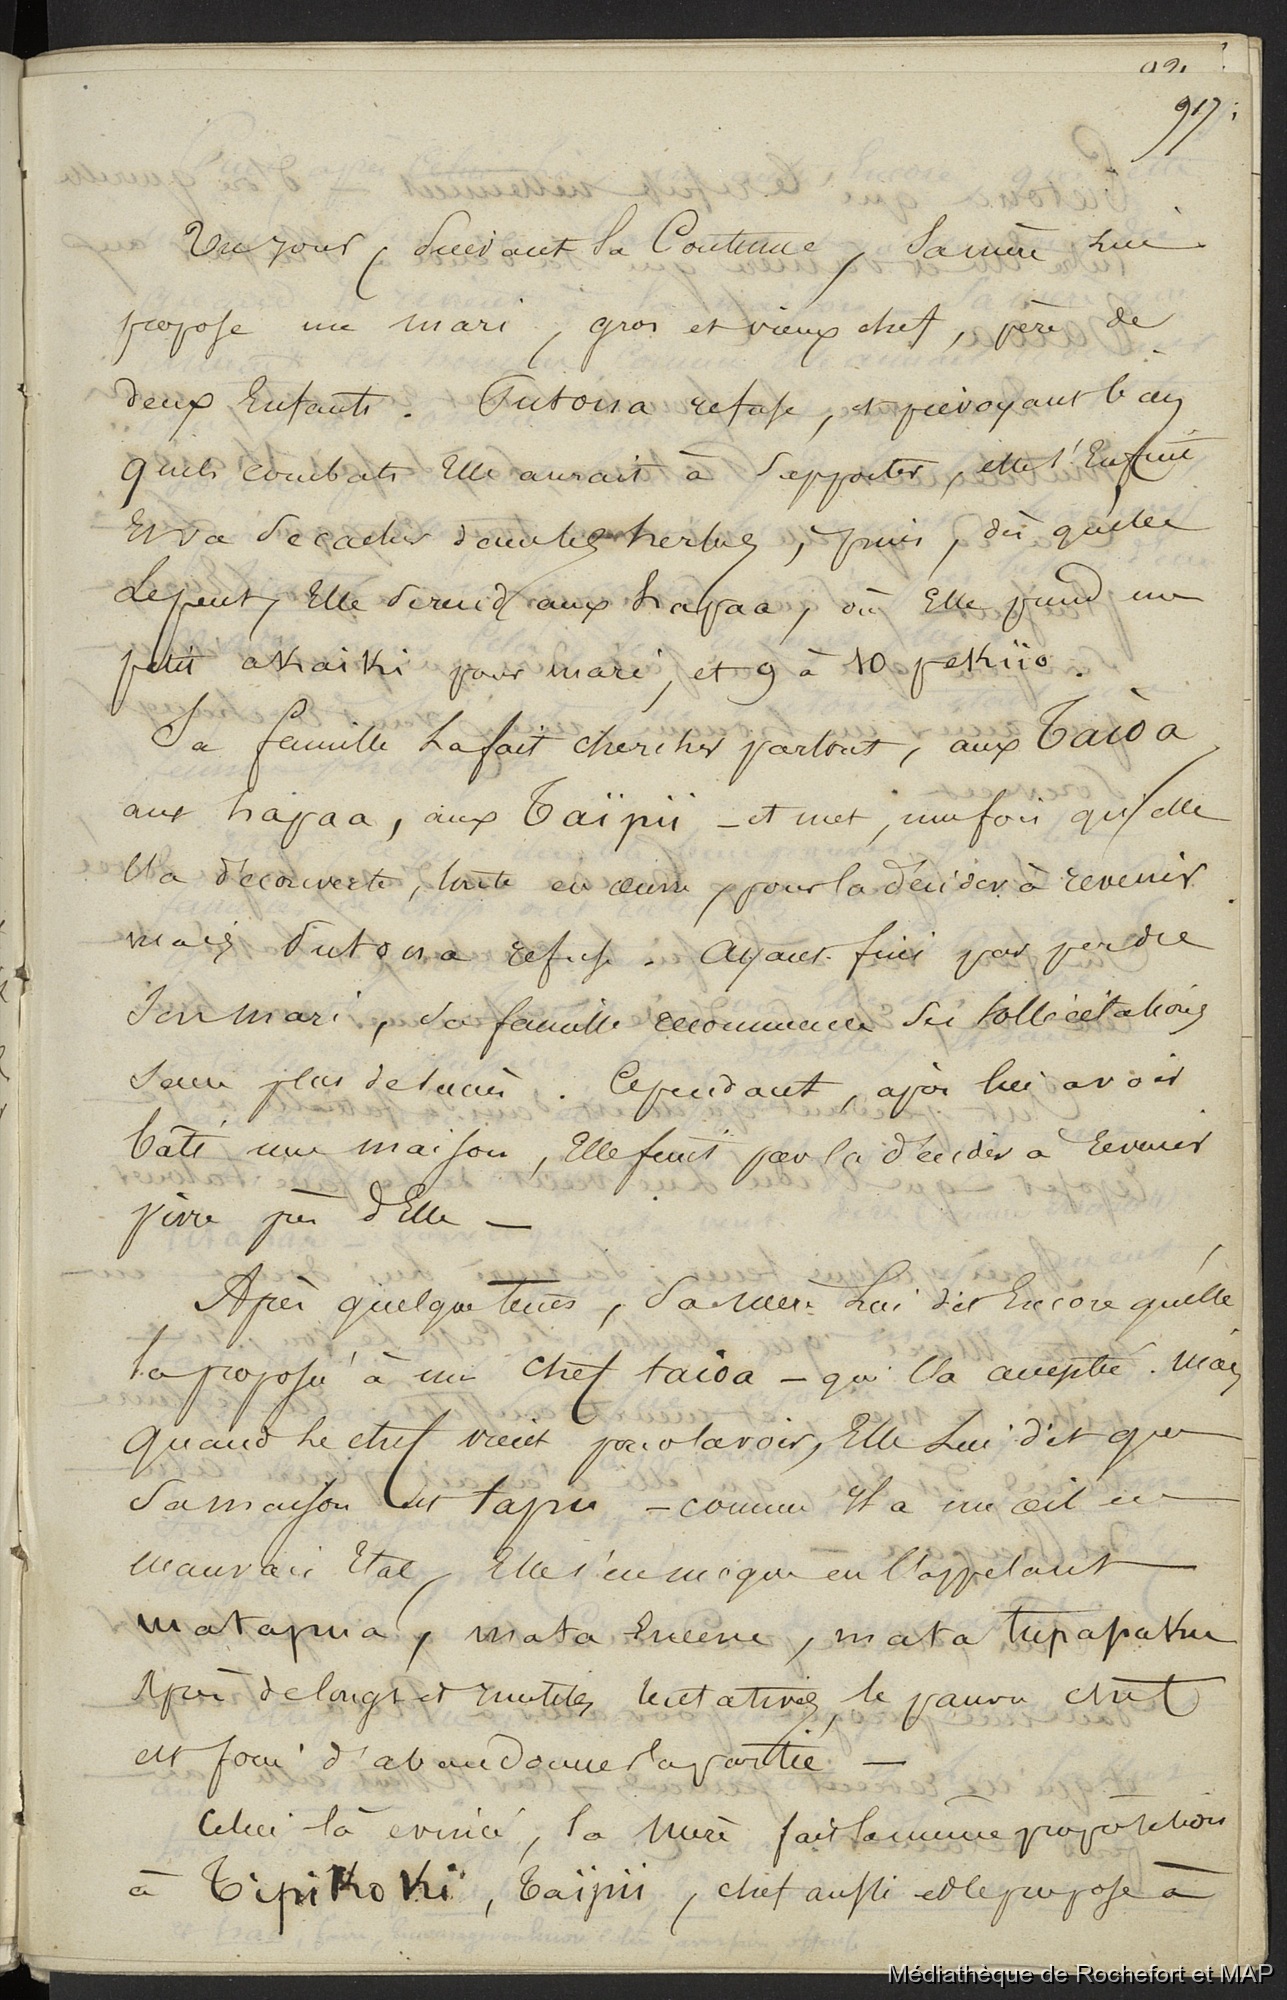 917.
Un jour, suivant la Coutume, sa mère Lui
propose un mari, gros et vieux chef, père de
deux Enfants. Tutona refuse, et prévoyant bien
quels combats Elle aurait à supporter, elle s'Enfuit
Et va se cacher dans les herbes, puis, dès qu'elle
Le peut, Elle se rend aux hapaa, où Elle prend un
petit akaiki pour mari, et 9 à 10 pekiio.
Sa famille La fait chercher partout, aux Taioa,
aux hapaa, aux Taïpii – et met, une fois qu'elle
l'a découverte, tout en œuvre, pour la décider à revenir
mais Tutona refuse. Ayant fini par perdre
son mari, sa famille recommence ses sollicitations
sans plus de succès. Cependant, après lui avoir
bâti une maison, Elle finit par la décider à revenir
vivre près d'Elle –
Après quelque tems, sa mère Lui dit Encore qu'elle
l'a proposé à un Chef taioa – qui l'a acceptée. Mais
quand Le chef vient pour la voir, Elle Lui dit que
sa maison est tapu – comme Il a un œil en
mauvais Etat, Elle s'en moque en l'appelant
matapua, mata Eneene, mata tupapaku
Après de longs et inutiles tentatives, le pauvre chef
est forcé d'abandonner la partie –
Celui là evincé, la mère fait la même proposition
à Tipikoki, Taïpii, chef aussi et le propose à
Médiathèque de Rochefort et MAP